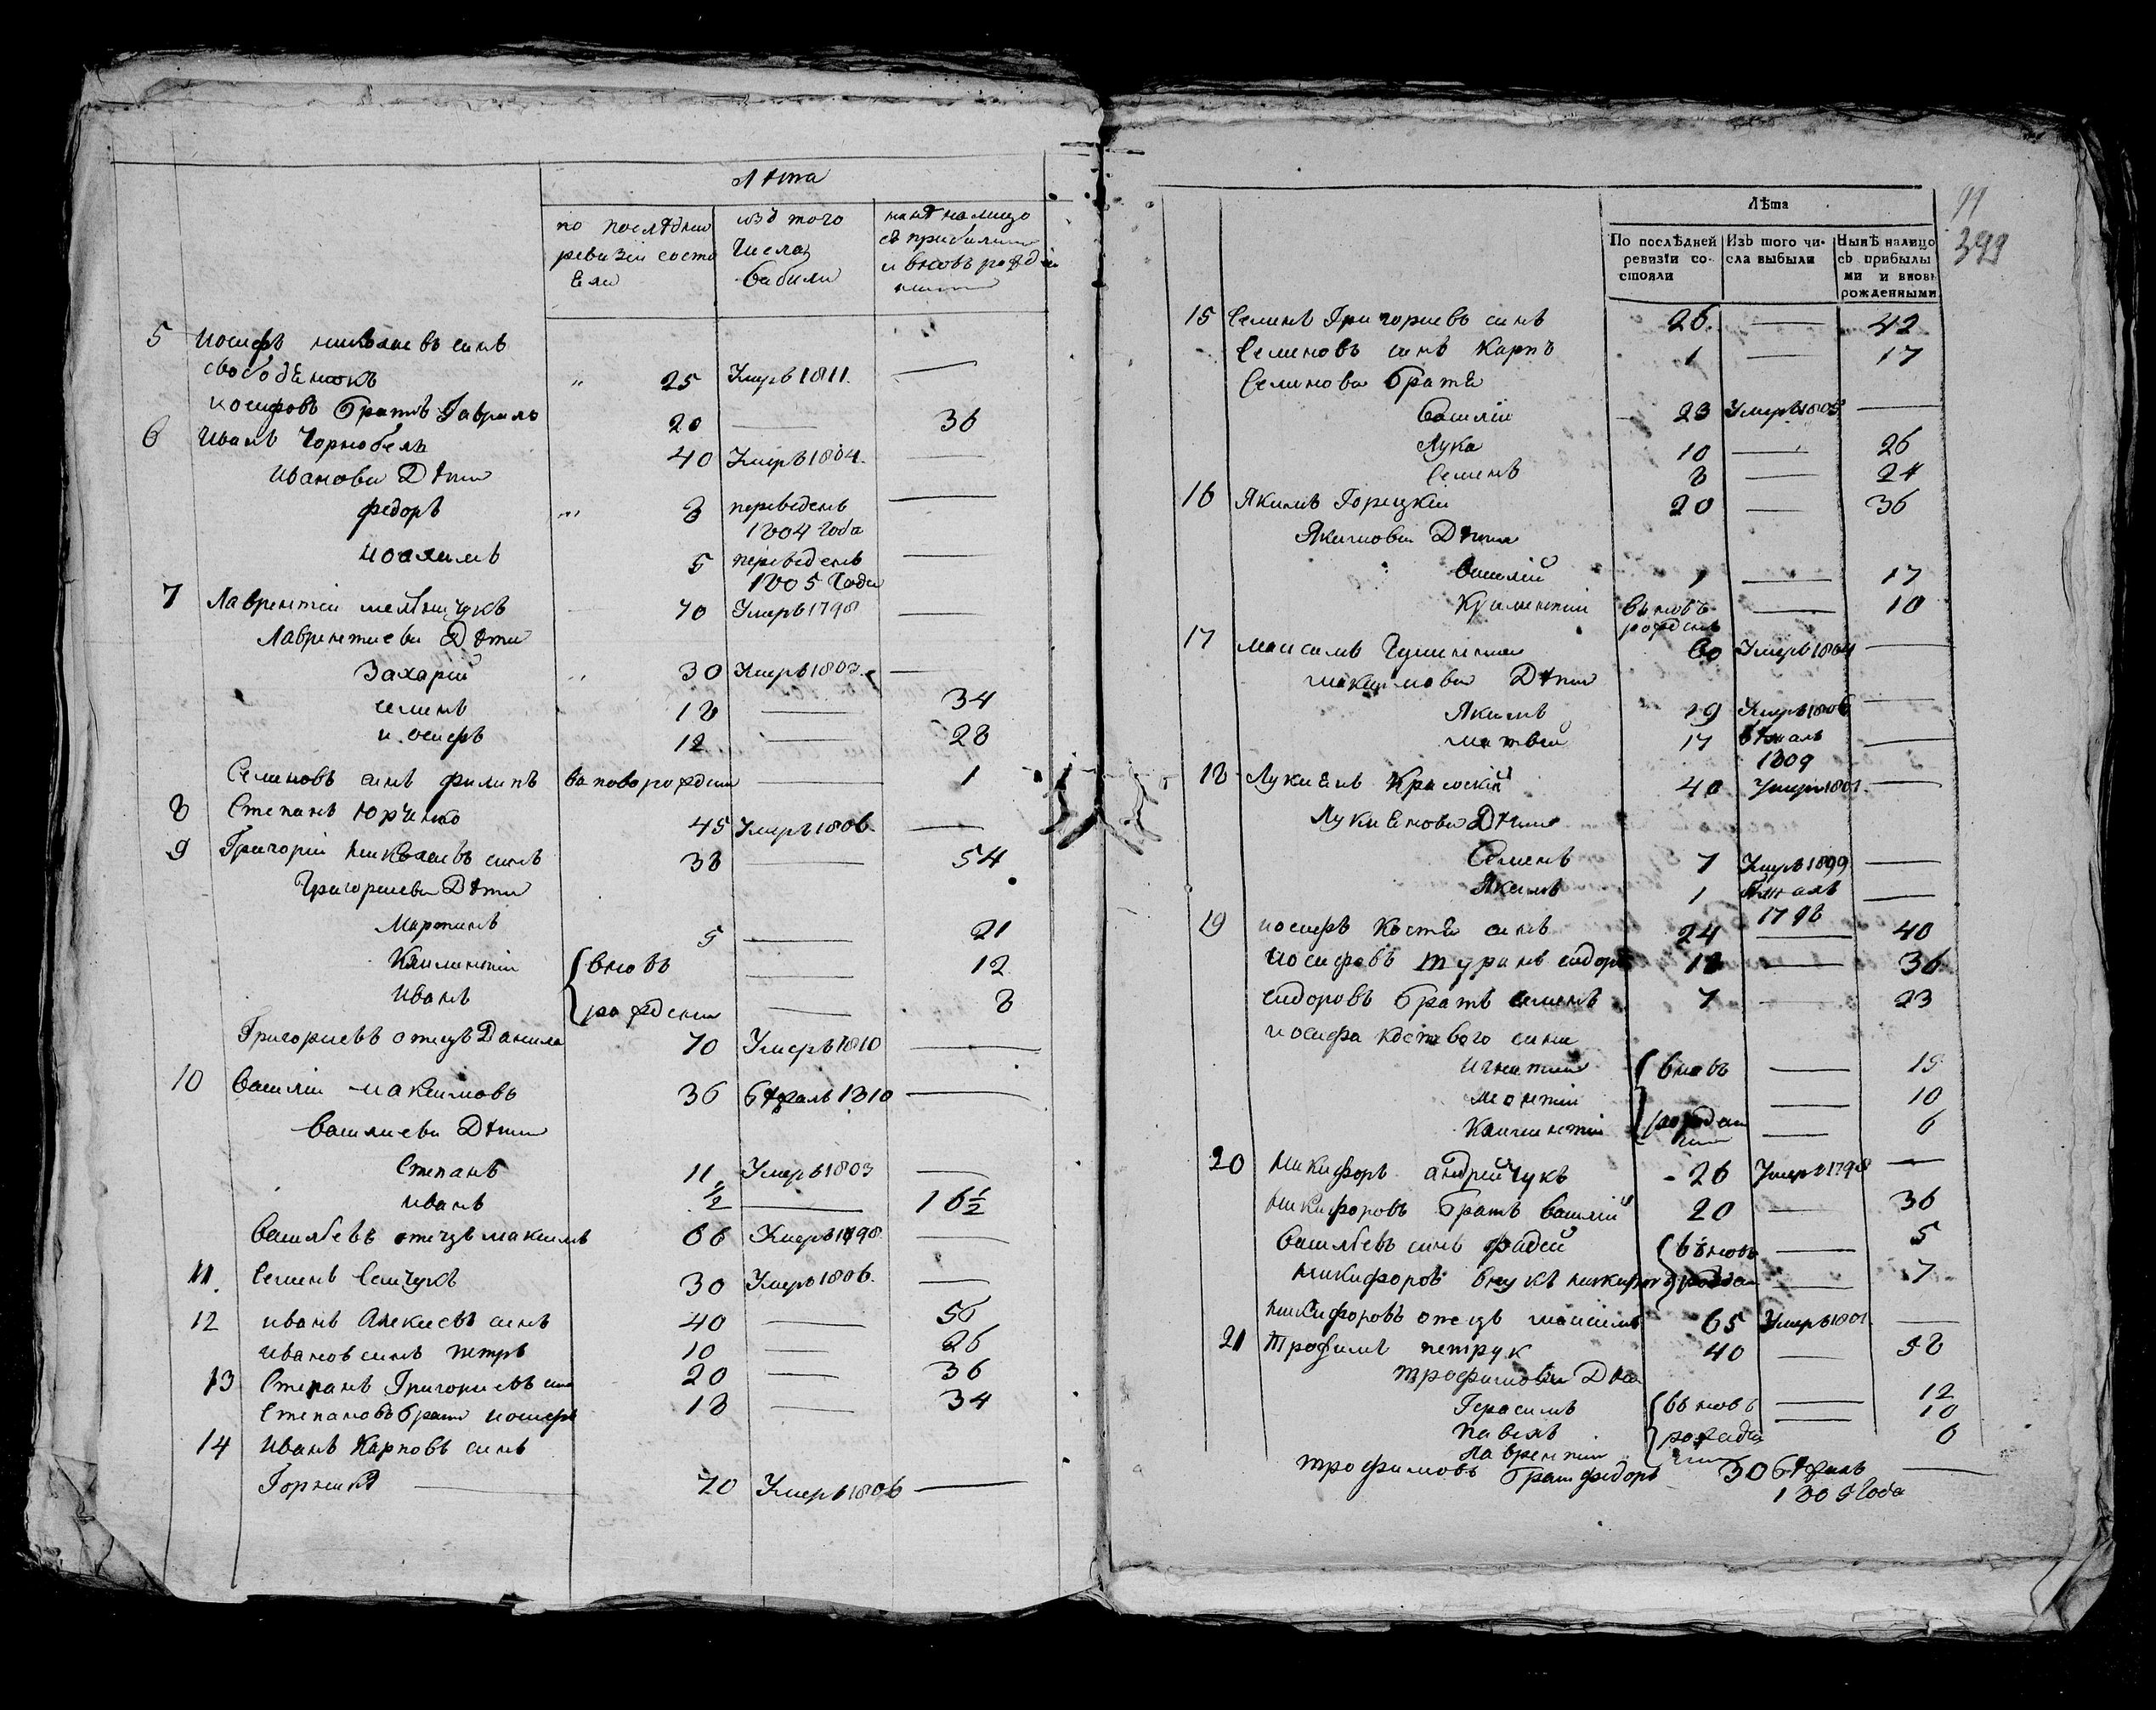 Лѣта
по послѣднии ревизіи состо Ели
изъ того Числа вибили
нинѣ налицо съ прибилими и вновь рожденими
5 Иосифъ николаевъ синъ
свободЕнюкъ 25 Умеръ 1811. —
иосифовъ братъ Гаврило 20 — 36
6 Иванъ Чорнобель 40 Умеръ 1804. —
Иванови Дѣти
федоръ 8 переведенъ —
1804 года
Иоахимъ 5 переведенъ —
1805 Года
7 Лаврентіи мелничукъ 70 Умеръ 1798 —
Лаврентиеви Дѣти
Захарій 30 Умеръ 1803. —
семенъ 18 — 34
иосифъ 12 — 28
Семеновъ синъ филипъ вановорожденъ — 1
8 Степанъ Юрченко 45 Умеръ 1806. —
9 Григорій николаевъ синъ 38 — 54
Григориеви Дѣти
Мартинъ 5 — 21
Климентій вновъ — 12
Иванъ рождени — 8
Григориевъ отецъ Данила 70 Умеръ 1810 —
10 Василіи максимовъ 36 бѣжалъ 1810 —
Василиеви Дѣти
Степанъ 11 Умеръ 1803 —
иванъ ½ — 16½
Василѣевъ отецъ максимъ 66 Умеръ 1798 —
11. Семенъ Семчукъ 30 Умеръ 1806. —
12 иванъ Алексиевъ синъ 40 — 56
ивановъ синъ петръ 10 — 26
13 Степанъ Григориевъ син 20 — 36
Степановъ брат иосифъ 18 — 34
14 Иванъ Карповъ синъ
70 Умеръ 1806 —
99
399
Лѣта
По послѣдней ревизіи состояли
Изъ того числа выбыли
Нынѣ налицо съ прибылыми и вновь рожденными
15 Семенъ Григориевъ синъ 26. — 42
Семеновъ синъ Карпъ 1 — 17
Семенови братЯ
Василіи 23 Умеръ 1805 —
Лука 10 — 26
Семенъ 8 — 24
16 Якимъ Горецкій 20 — 36
Якимови Дѣти
Василій 1 — 17
Климентіи вновъ рожденъ — 10
17 максимъ 60 Умеръ 1804 —
максимови Дѣти
Якимъ 19 Умеръ 1806 —
матвей 17 бѣжалъ —
1809
18 ЛукиЕнъ Красоскій 40 Умеръ 1801. —
ЛукиЕнови Дѣти
Семенъ 7 Умеръ 1899 —
Якимъ 1 бѣжалъ —
1798
19 иосифъ КостЯ синъ 24 — 40
Иосифовъ шуринъ сидоръ 18 — 36
сидоровъ братъ семенъ 7 — 23
иосифа костевого сини
игнатіи вновъ — 15
леонтіи — 10
Климентіи рожденни — 6
20 никифоръ андрейчукъ 26 Умеръ 1798 —
никифоровъ братъ Василій 20 — 36
Василѣевъ синъ фадей вѣновъ — 5
никифоровъ внукъ никифоръ — 7
никифоровъ отецъ максимъ 65 Умеръ 1801. —
21 Трофимъ петрук 40 — 58
Трофимови Дѣти
Герасимъ вьновъ — 12
павелъ — 10
Лаврентіи 6
трофимовъ брат федоръ 30 бѣжалъ —
1805 Года